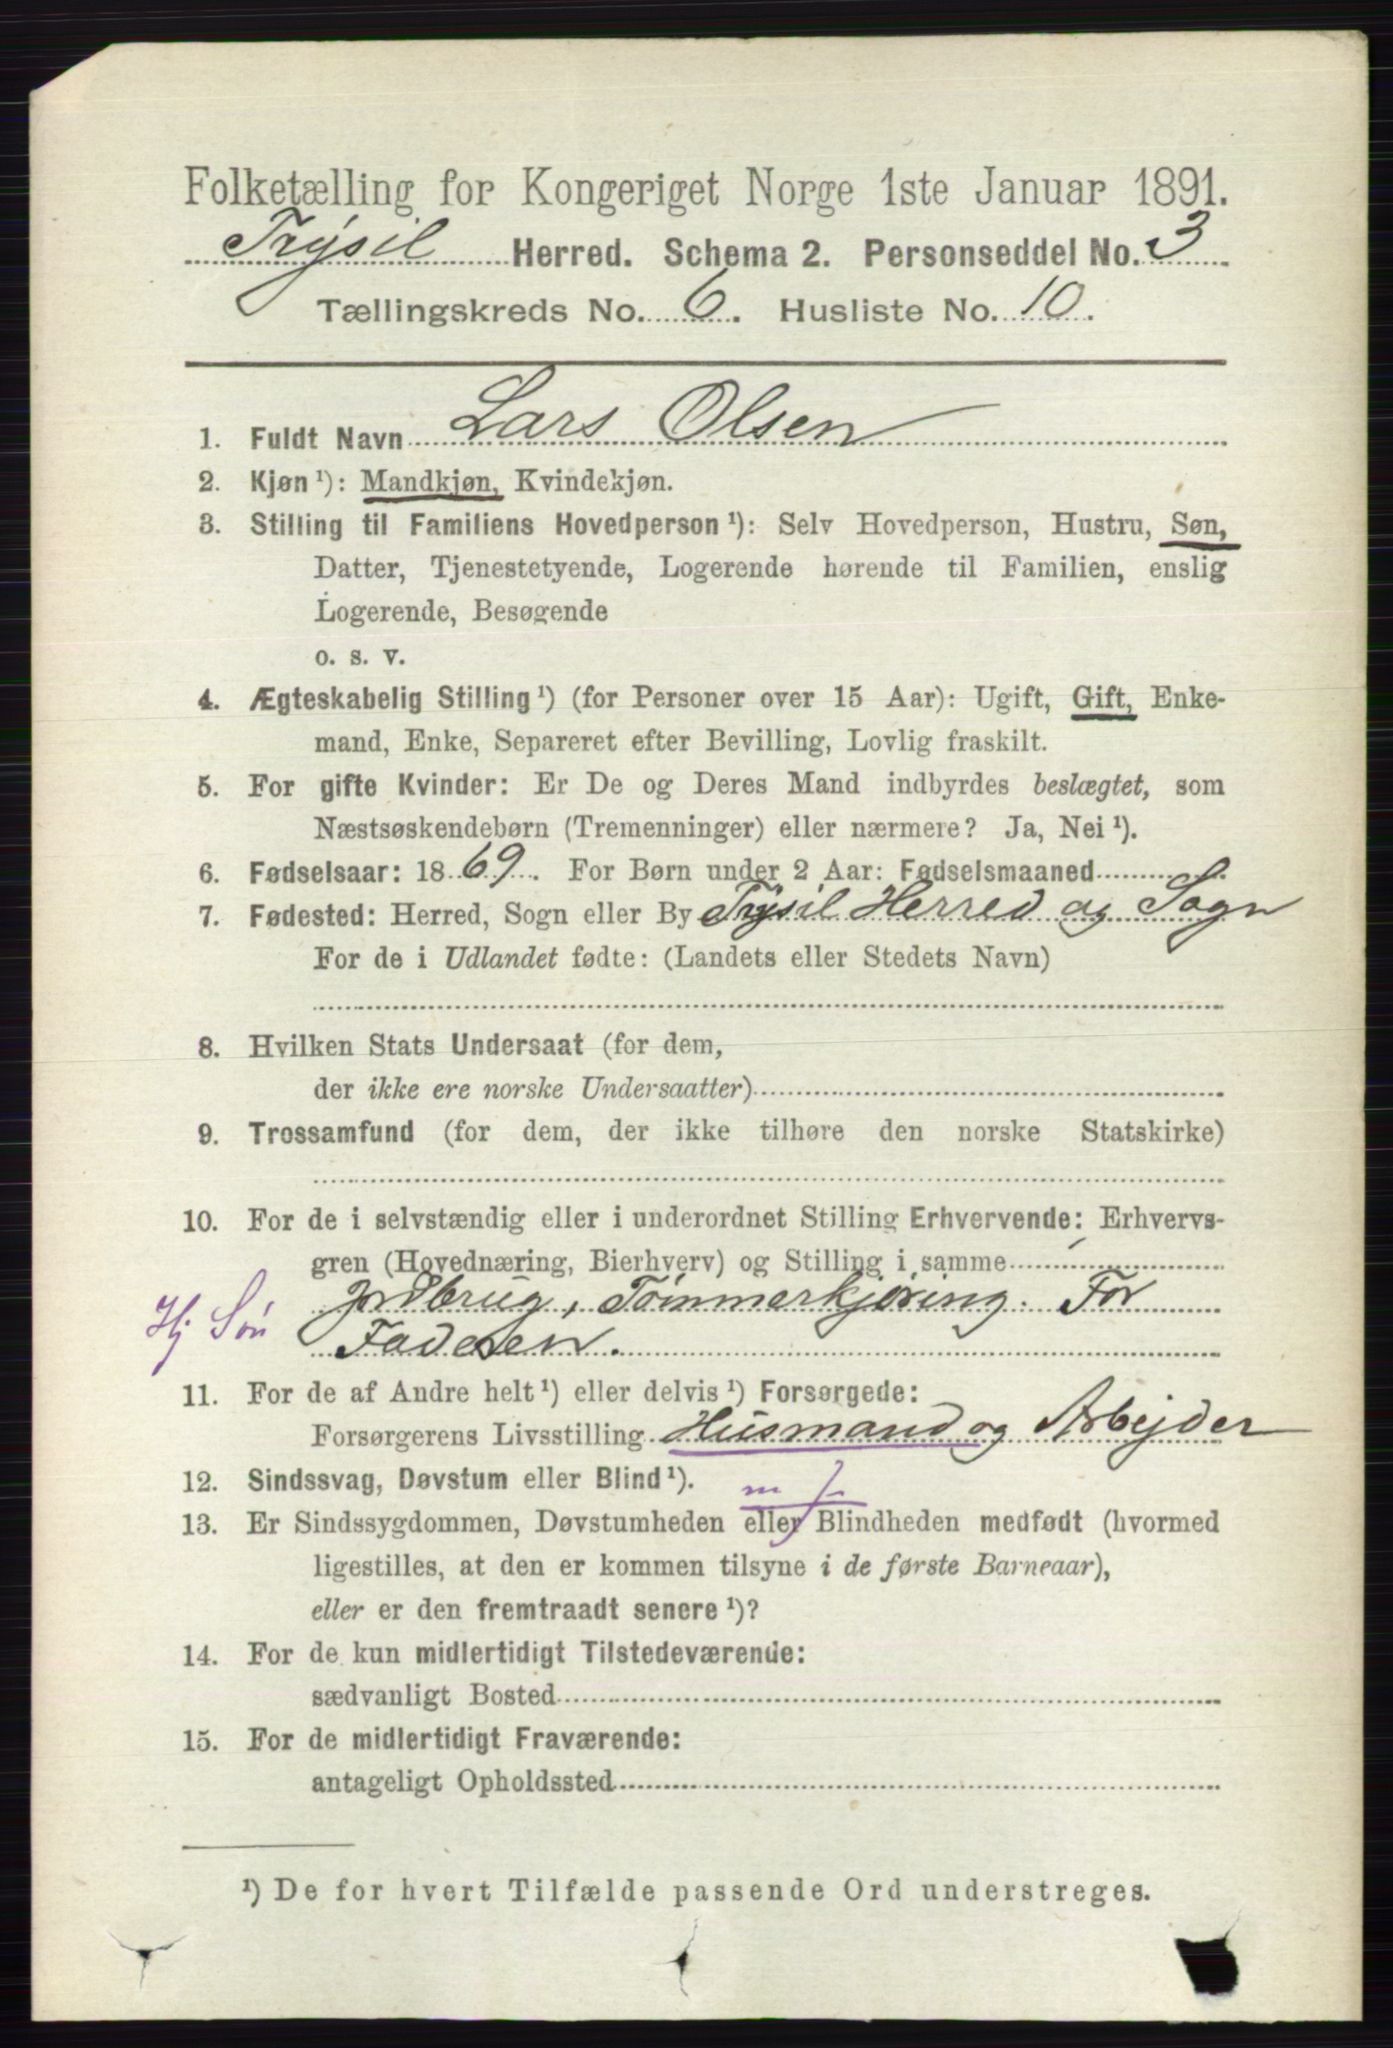 Folketælling for Kongeriget Norge 1ste Januar 1891.
Trysil Herred. Schema 2. Personseddel No. 3
Tællingskreds No. 6. Husliste No. 10.
1. Fuldt Navn Lars Olsen
2. Kjøn ¹): Mandkjøn, Kvindekjøn.
3. Stilling til Familiens Hovedperson ¹): Selv Hovedperson, Hustru, Søn,
Datter, Tjenestetyende, Logerende hørende til Familien, enslig
Logerende, Besøgende
o. s. v.
4. Ægteskabelig Stilling ¹) (for Personer over 15 Aar): Ugift, Gift, Enke-
mand, Enke, Separeret efter Bevilling, Lovlig fraskilt.
5. For gifte Kvinder: Er De og Deres Mand indbyrdes beslægtet, som
Næstsøskendebørn (Tremenninger) eller nærmere? Ja, Nei ¹).
6. Fødselsaar: 1869. For Børn under 2 Aar: Fødselsmaaned
7. Fødested: Herred, Sogn eller By Trysil Herred og Sogn
For de i Udlandet fødte: (Landets eller Stedets Navn)
8. Hvilken Stats Undersaat (for dem,
der ikke ere norske Undersaatter)
9. Trossamfund (for dem, der ikke tilhøre den norske Statskirke)
10. For de i selvstændig eller i underordnet Stilling Erhvervende: Erhvervs-
gren (Hovednæring, Bierhverv) og Stilling i samme
Hj Søn Jordbrug, Tømmerkjøring. For
Faderen.
11. For de af Andre helt ¹) eller delvis ¹) Forsørgede:
Forsørgerens Livsstilling Husmand og Arbejder
12. Sindssvag, Døvstum eller Blind ¹). m
13. Er Sindssygdommen, Døvstumheden eller Blindheden medfødt (hvormed
ligestilles, at den er kommen tilsyne i de første Barneaar),
eller er den fremtraadt senere ¹)?
14. For de kun midlertidigt Tilstedeværende:
sædvanligt Bosted
15. For de midlertidigt Fraværende:
antageligt Opholdssted
¹) De for hvert Tilfælde passende Ord understreges.